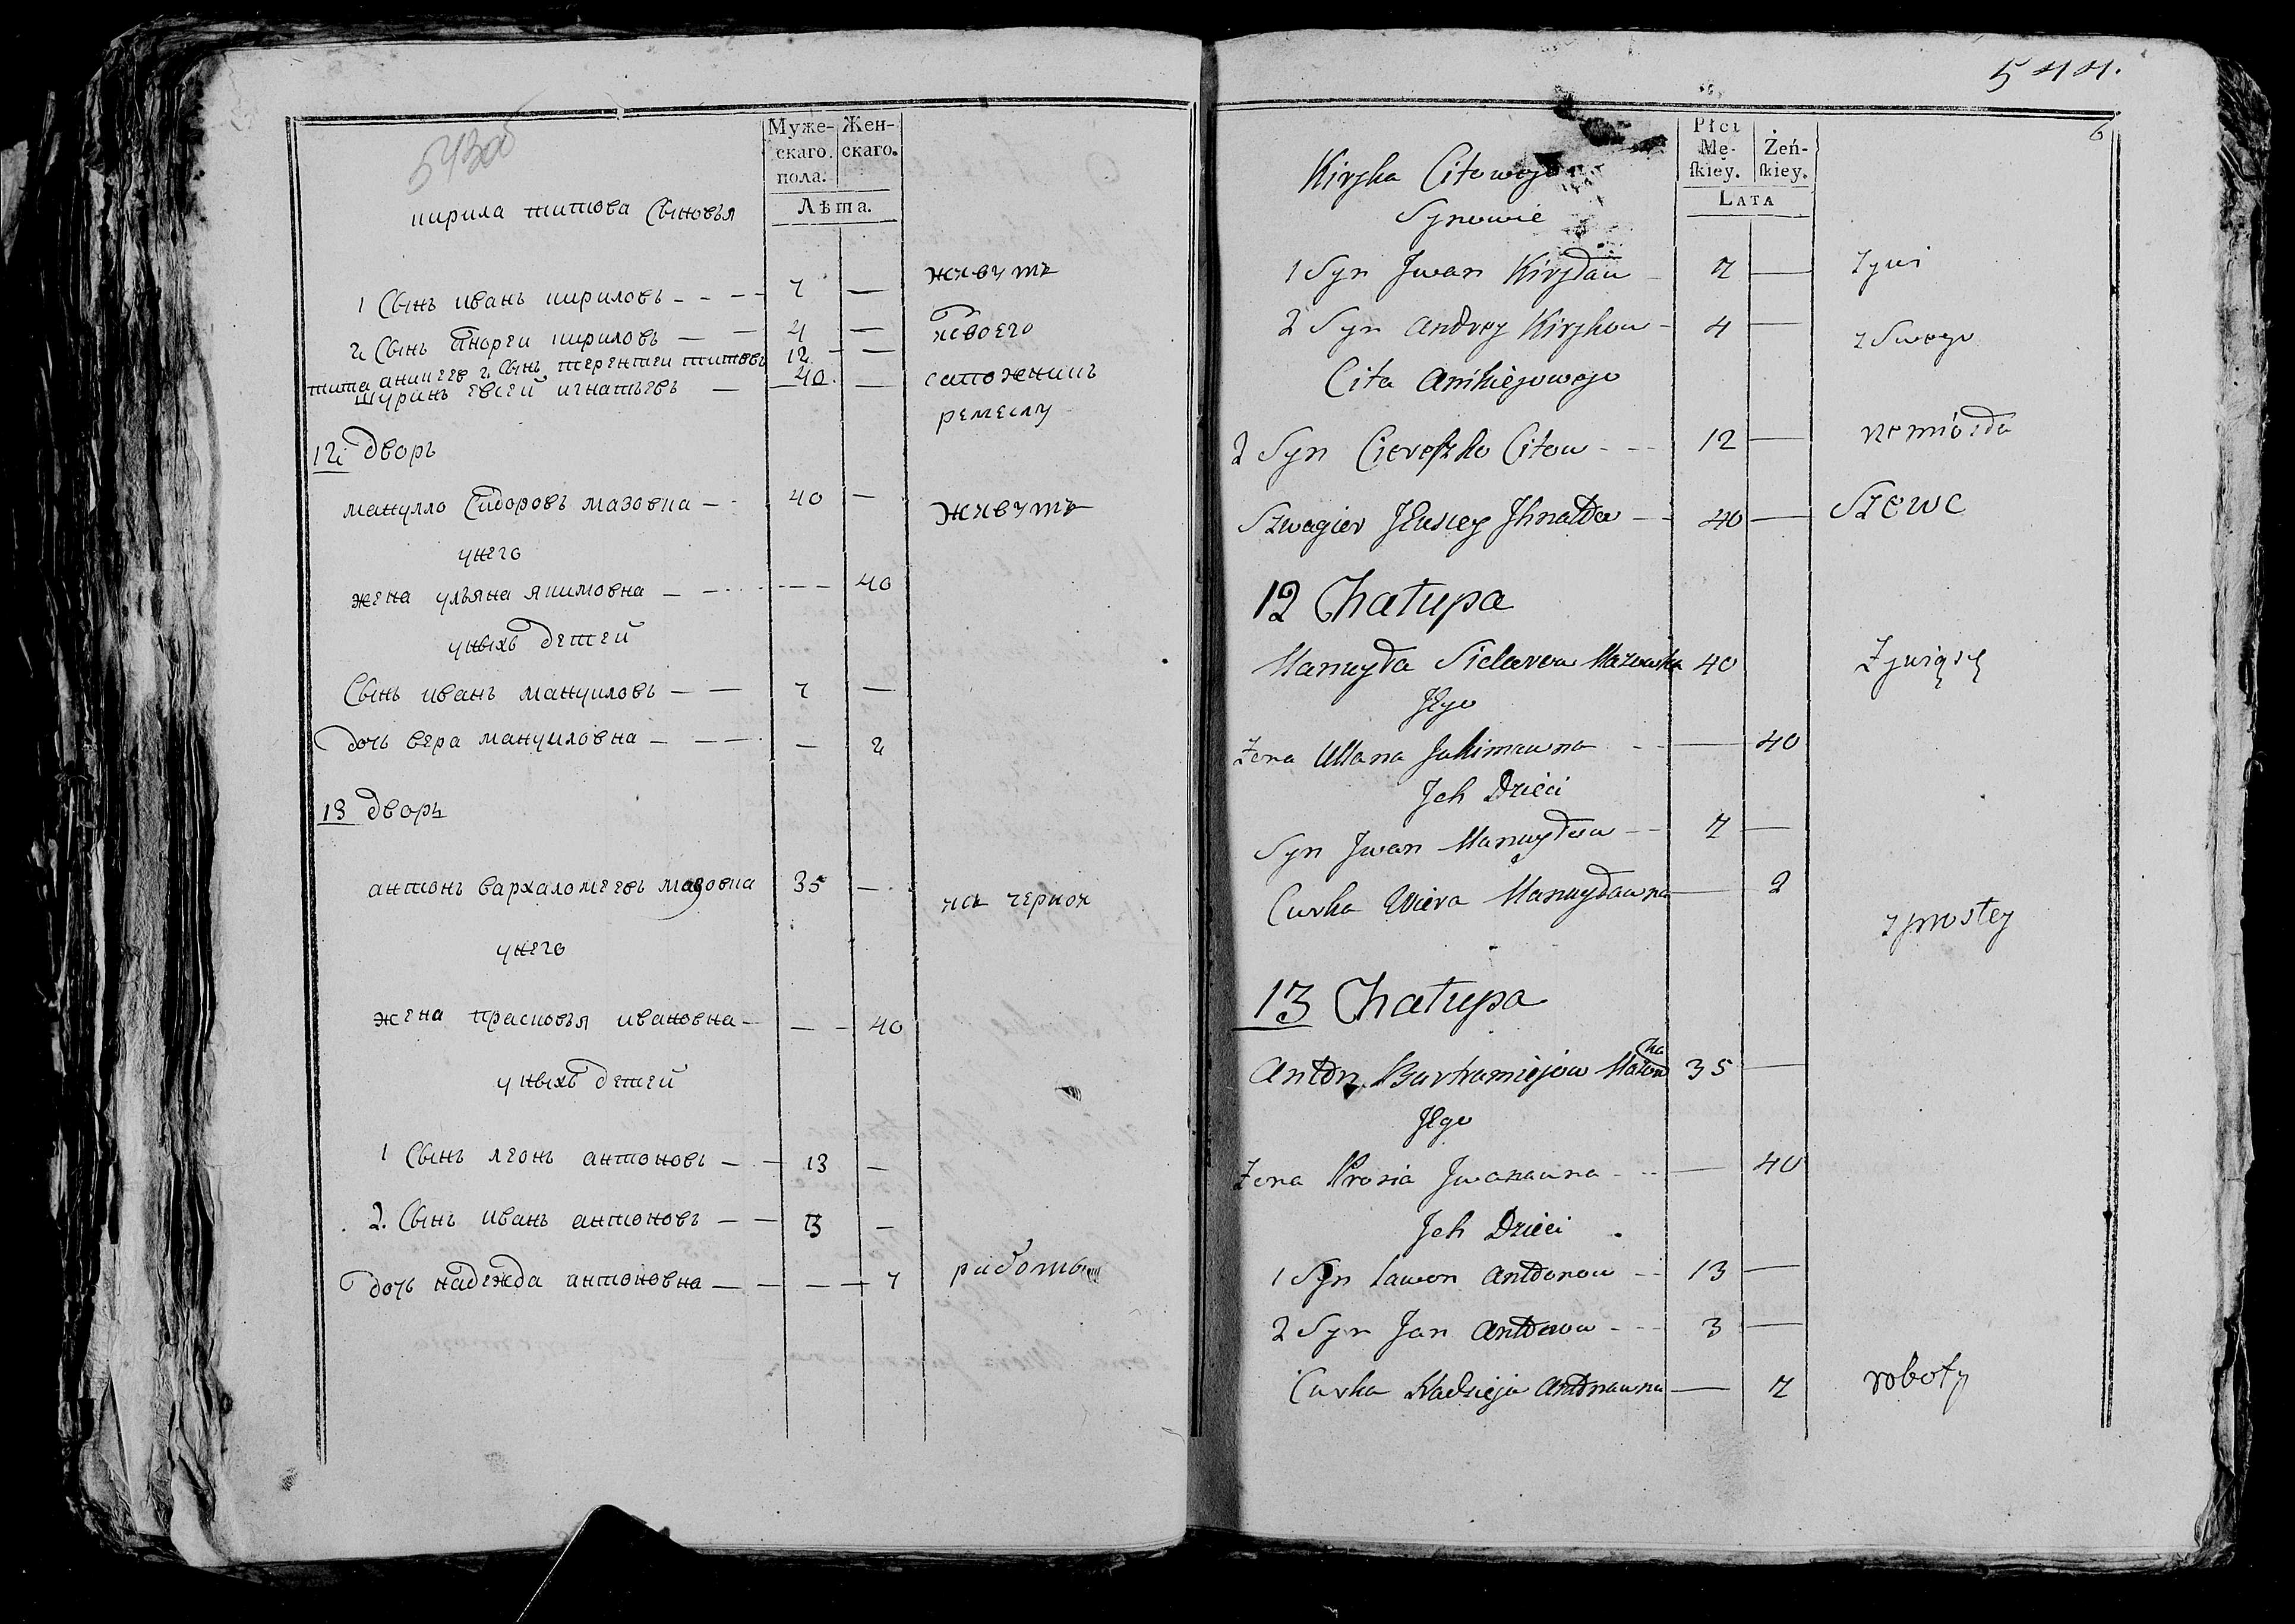 543об
Муже-
скаго
пола.
Жен-
скаго.
Лѣта.
кирила титова сыновья
1 Сынъ иванъ кириловъ - - - - 7 — живутъ
2 Сынъ андреи кириловъ — 4 — ꙁсвоего
тита аникеев 2 сынъ терентеи титовъ 12 — —
шуринъ евсей игнатьевъ — 40. — сапожникъ
ремеслу
12 дворъ
мануйло Сидоровъ мазовка — - 40 — живутъ
унего
жена ульяна якимовна — — - - - - - 40
уныхъ детей
Сынъ иванъ мануиловъ — — 7 —
дочь вера мануиловна — — — - — 2
13 дворъ
антонъ вархаломеевъ мазовка 35 — черной
унего
жена прасковья ивановна — — - 40
уныхъ детей
1 Сынъ леонъ антоновъ — — 13 —
2. Сынъ иванъ антоновъ — — 3 —
дочь надежда антоновна — — — — 7 работы
544.
6
Płci
Mę-
ſkiey.
Żeń-
ſkiey.
LATA
Kiryka Citowego
Synowie
1 Syn Jwan Kiryłau — 7 — Zywi
2 Syn Andrey Kirykow - 4 — z Swego
Cita Anikiejowego
2 Syn Cereszko Citow - - - 12 — remiosła
Szwagier Jewsiey Jhnatow — 40 — Szewc
12 Chałupa
Manuyła Sidarow Mazowka 40 Zywią się
Jego
Zona Ullana Jakimawna - - — 40
Jch Dzieci
Syn Jwan Manuyłow - - 7 —
Curka Wiera Manuyławna — 2
z prostey
13 Chałupa
Anton Bartramiejow Mazowka 35 —
Jego
Zona Prosia Jwanawna - - - — 40
Jch Dzieci
1 Syn Lawon Antonow - - 13 —
2 Syn Jan Antonow - - - 3 —
Curka Nadzieja Antonawna — 7 roboty